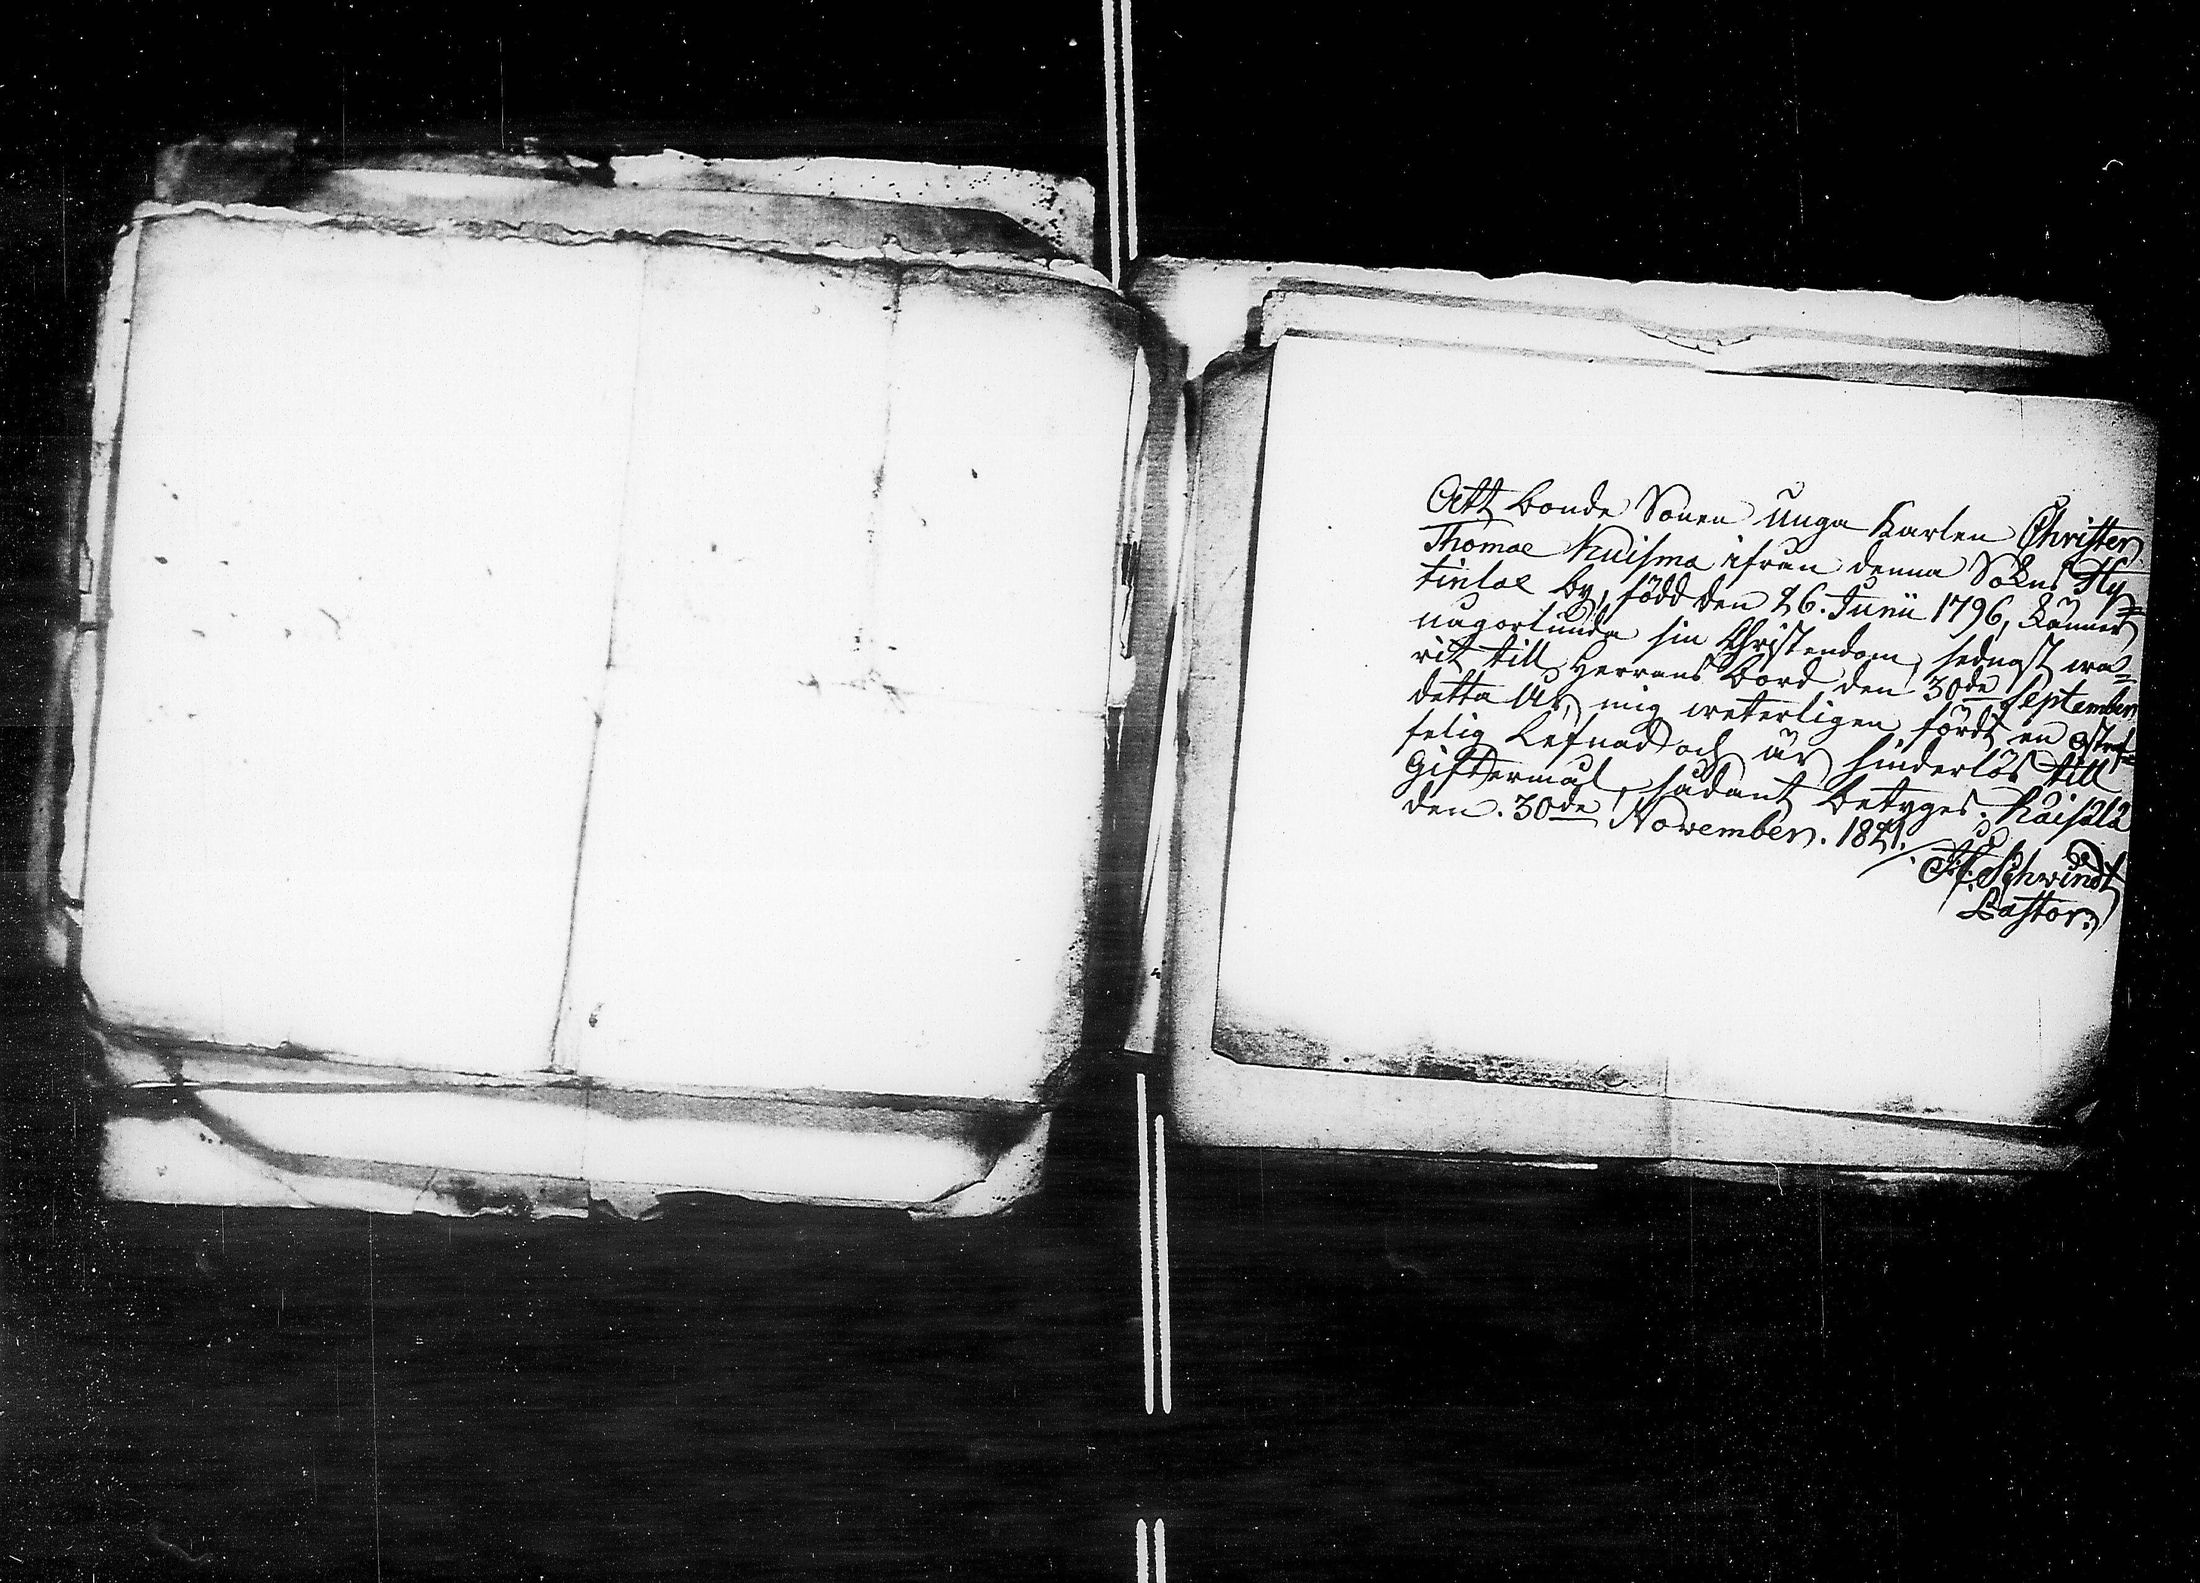 Att bonde Sonen unga Karlen Christer
Thomae Kuisma ifrån denna Sokns Hy=
tinlae by, född den 26. Junii 1796, känner
nagorlunda sin Christendom, sednast wa=
rit till Herrans Bord den 30de September
detta År, mig weterligen fördt en ostraf=
felig Lefnad och är hinderlös till
Giftermål, sådant betyges. Kaisåla
den. 30de November. 1821.
Schwindt
Pastor.